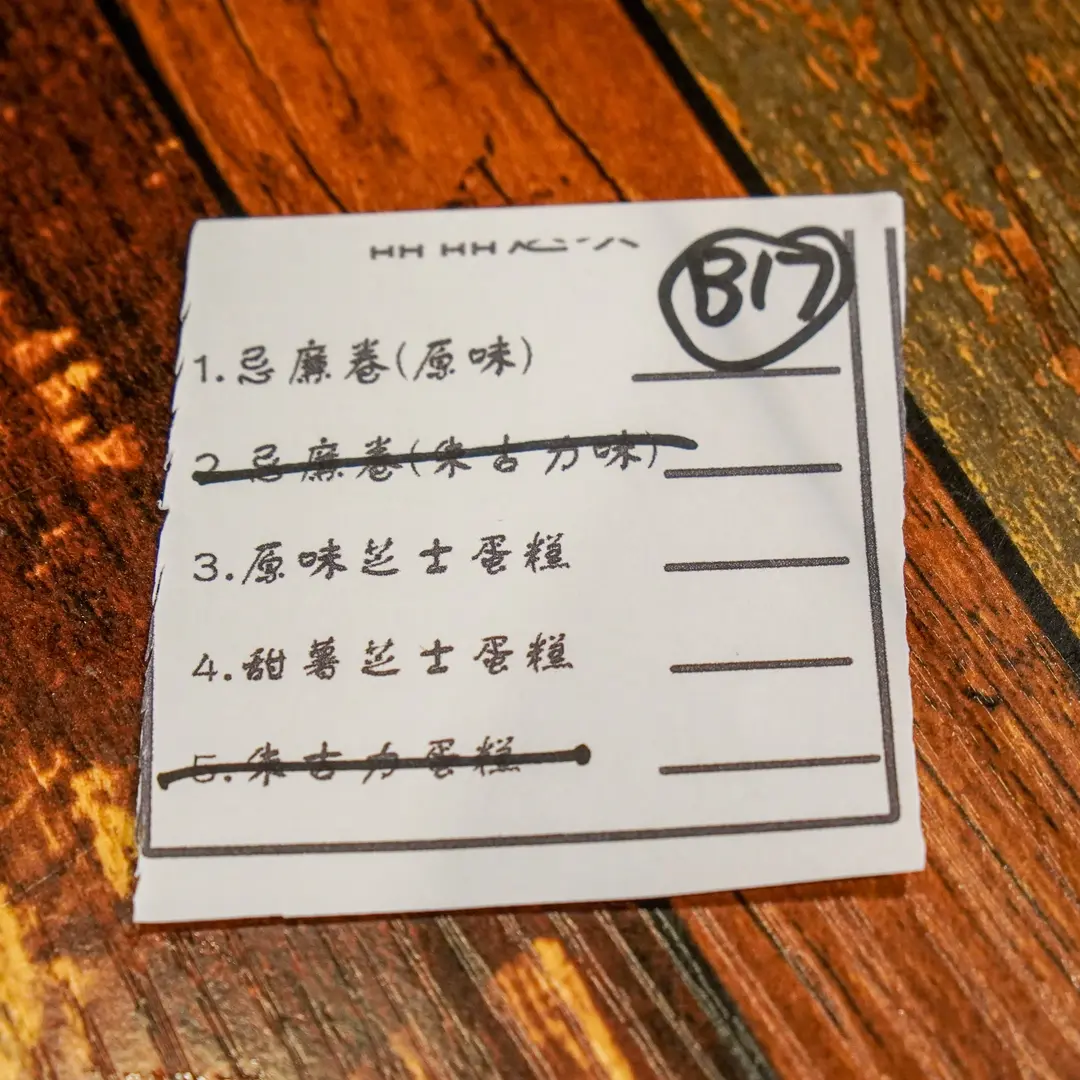 B17
1.忌廉卷(原味)
2.忌廉卷(朱古力味)
3.原味芝士蛋糕
4.甜薯芝士蛋糕
5.朱古力蛋糕